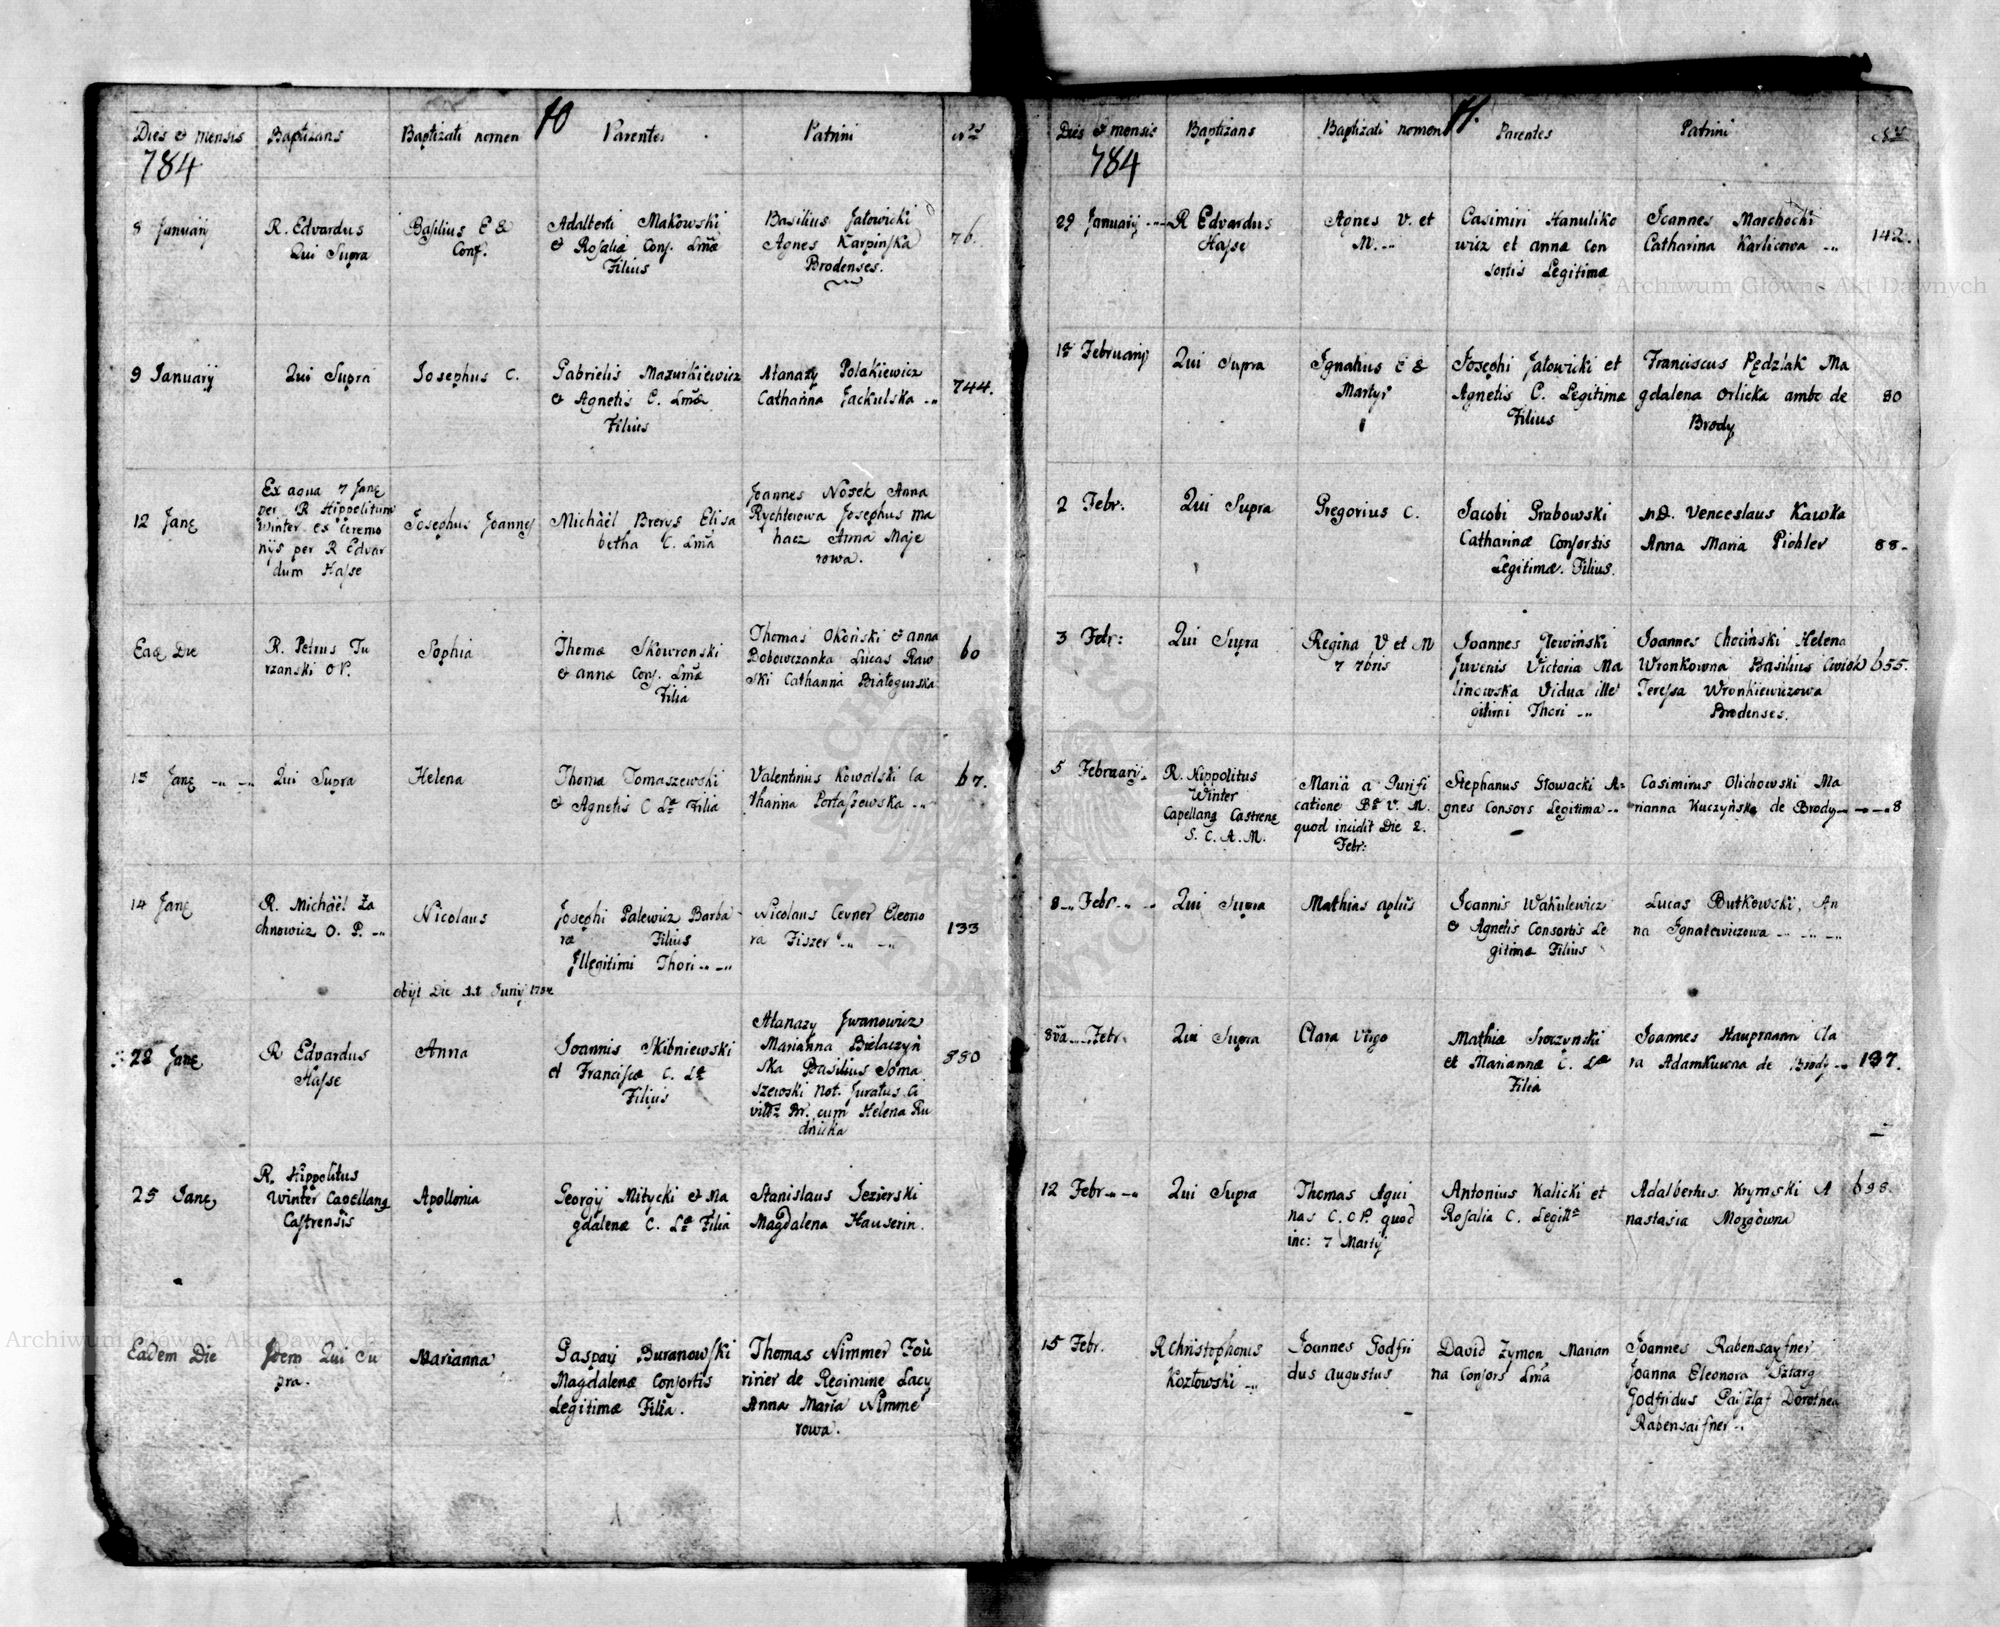 10
Dies et mensis Baptizans Baptizati nomen Parentes Patrini
784
8 Januarij
R. Edvardus
Qui Supra
Basilius E &
Conf.
Adalberti Makowski
& Rosaliæ Conf. Lmæ
Filius
Basilius Jatowicki
Agnes Karpinska
Brodenses.
76.
9 Januarij
Qui Supra
Josephus C.
Gabrielis Mazurkiewicz
& Agnetis C. Lmæ
Filius
Atanazy Polakiewicz
Catharina Jackulska
744.
12 Janę
Ex aqua 7 Janę
per R Hippolitum
Winter ex ceremo
nijs per R Edvar
dum Hasse
Josephus Joannes
Michäel Brerys Elisa
betha C. Lma
Joannes Nosek Anna
Rychterowa Josephus ma
hacz Anna Maje
rowa.
Eaę Die
R. Petrus Tu
rzanski O P.
Sophia
Thomæ Skowronski
& annæ Conf. Lmæ
Filia
Thomas Okoński & anna
Bobowczanka Lucas Raw
ski Catharina Białogurska
60
13 Janę
Qui Supra
Helena
Thomæ Tomaszewski
& Agnetis C Læ Filia
Valentinus Kowalski Ca
tharina Portassewska
67.
14 Janę
R. Michäel Za
chnowicz O. P.
Nicolaus
Josephi Palewicz Barba
ræ Filius
Illegitimi Thori
Nicolaus Ceyner Eleono
ra Fiszer
133
obijt Die 11 Junij 1784
22 Janę
R Edvardus
Hasse
Anna
Joannis Skibniewski
et Franciscæ C. Læ
Filius
Atanazy Jwanowicz
Marianna Bielaczyń
ska Basilius Soma
szewski Not. Juratus Ci
vittis Br. cum Helena Ru
dnicka
880
25 Janę
R. Hippolitus
Winter Capellanę
Castrensis
Apollonia
Georgij Mitycki & Ma
gdalenæ C. Læ Filia
Stanislaus Jezierski
Magdalena Hauserin.
Eadem Die
Idem Qui Su
pra.
Marianna
Gaspari Buranowski
Magdalenæ Consortis
Legitimæ Filia.
Thomas Nimmer Foü
ririer de Regimine Lacy
Anna Maria Nimme
rowa.
11.
Dies et mensis Baptizans Baptizati nomen Parentes Patrini
784
29 Januarij
R Edvardus
Hasse
Agnes V. et
M.
Casimiri Hanuliko
wicz et annæ Con
sortis Legitimæ
Joannes Marchocki
Catharina Karlicowa
142.
1æ Februarij
Qui Supra
Ignatius E &
Martyr
Josephi Jatowicki et
Agnetis C. Legitimæ
Filius
Franciscus Pędziak Ma
gdalena Orlicka ambo de
Brody
80
2 Febr:
Qui Supra
Gregorius C.
Jacobi Grabowski
Catharinæ Consortis
Legitimæ. Filius.
M.D. Venceslaus Kawka
Anna Maria Pichler
88-
3 Febr:
Qui Supra
Regina V et M
7 7bris
Joannes Głowiński
Juvenis Victoria Ma
linowska Vidua ille
gitimi Thori
Joannes Chociński Helena
Wronkowna Basilius Cwiok
Teressa Wronkiewiczowa
Brodenses.
655.
5 Februarij.
R. Hippolitus
Winter
Capellanę Castrenę
S. C. A. M.
Maria a Purifi
catione Bæ V. M.
quod incidit Die 2.
Febr:
Stephanus Słowacki A=
gnes Consors Legitima
Casimirus Olichowski Ma
rianna Kuczyńska de Brody
8
8 Febr
Qui Supra
Mathias aplus
Joannis Wakulewicz
& Agnetis Consortis Le
gitimæ Filius
Lucas Butkowski, An
na Ignatewiczowa
8va Febr.
Qui Supra
Clara Virgo
Mathiæ Sroczynski
et Mariannæ C. Læ
Filia
Joannes Hauptmann Cla
ra Adamkuwna de Brody
137.
12 Febr
Qui Supra
Thomas Aqui
nas C. O P. quod
inc: 7 Martij
Antonius Kalicki et
Rosalia C. Legitt
Adalbertus Krymski A
nastasia Mozgówna
698.
15 Febr.
R Christophorus
Kozłowski
Joannes Godfri
dus Augustus
David Zymon Marian
na Consors Lma
Joannes Rabensaysner
Joanna Eleonora Sztarg
Godfridus Paiszlaf Dorothea
Rabensaifner
Archiwum Główne Akt Dawnych
Archiwum Główne Akt Dawnych